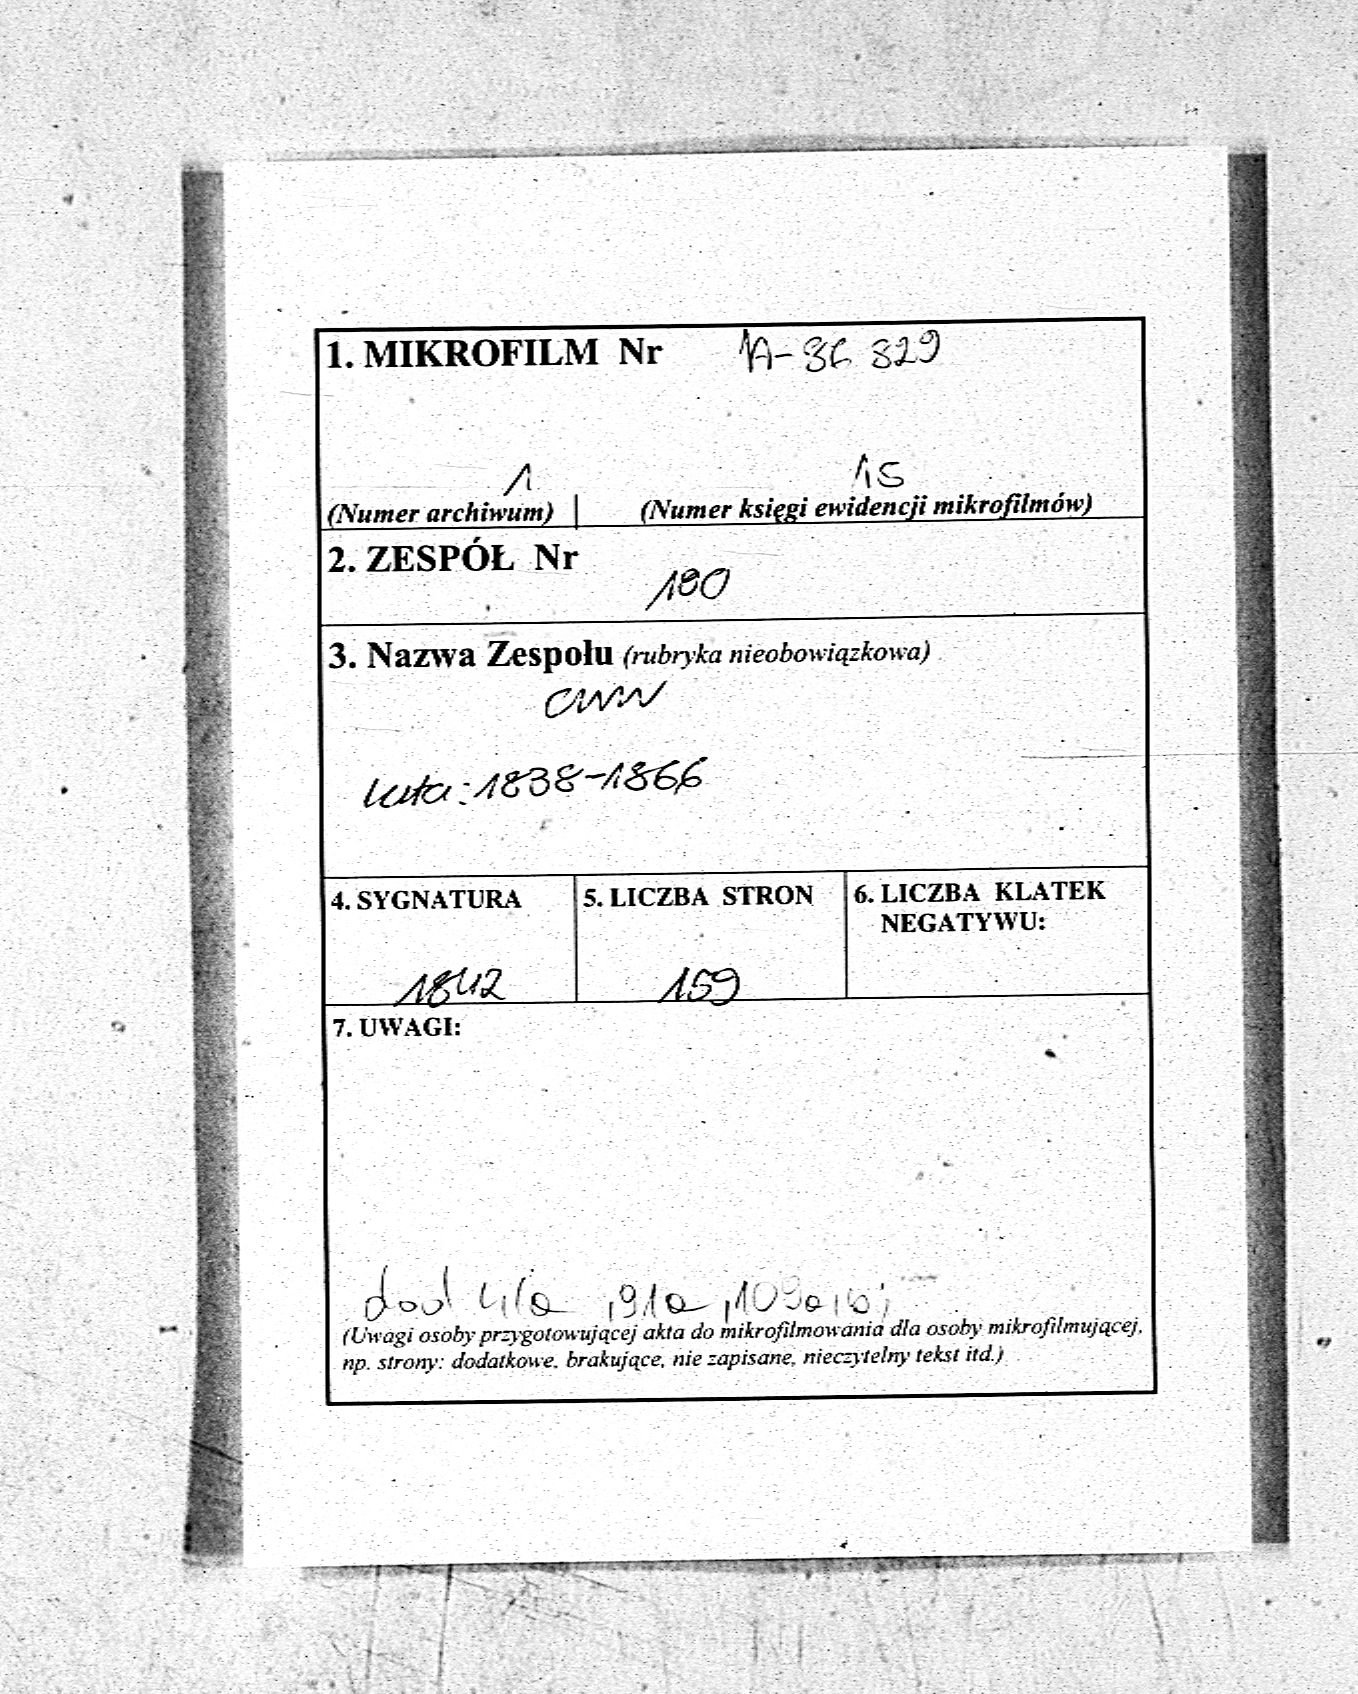 1. MIKROFILM Nr A-36 329
1 15
(Numer archiwum) (Numer księgi ewidencji mikrofilmów)
2. ZESPÓŁ Nr
190
3. Nazwa Zespołu (rubryka nieobowiązkowa)
CWW
lata: 1838-1866
4. SYGNATURA 5. LICZBA STRON 6. LICZBA KLATEK
NEGATYWU:
1842 159
7. UWAGI:
dod 41a, 91a, 109a, b;
(Uwagi osoby przygotowującej akta do mikrofilmowania dla osoby mikrofilmującej,
np. strony: dodatkowe, brakujące, nie zapisane, nieczytelny tekst itd.)